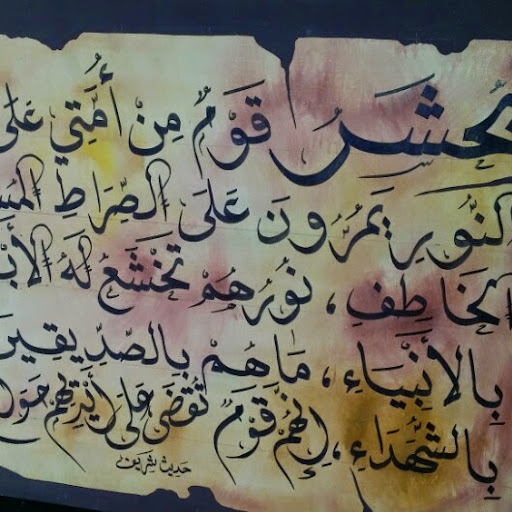 يُحْشَرُ قَوْمٌ مِنْ أُمَّتِي عَلَى
النُّورِ يَمُرُّونَ عَلَى الصِّرَاطِ
الخَاطِفِ، نُورُهُمْ تَخْشَعُ لَهُ
بِالأَنْبِيَاءِ، مَاهُمْ بِالصِّدِّيقِينَ
بِالشُّهَدَاءِ، إِنَّهُمْ قَوْمٌ تُقْضَى عَلَى أَيْدِيْهِمْ
حديث شريف